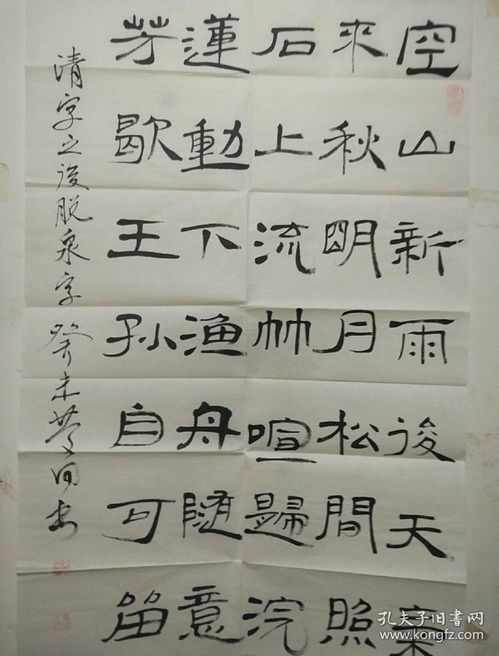 空山新雨後天氣
來秋明月松間照
石上流竹喧歸浣
蓮動下渔舟隨意
芳歇王孙自可留
清字之後脱泉字 癸未
孔夫子旧书网
www.kongfz.com